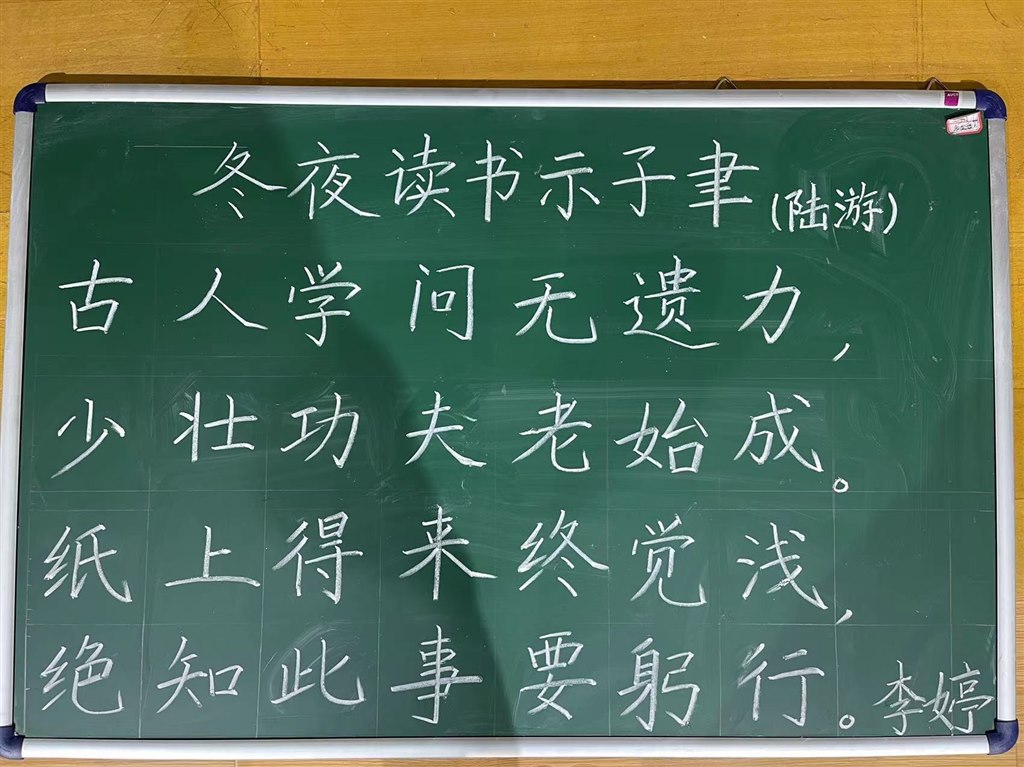 冬夜读书示子聿(陆游)
古人学问无遗力,
少壮功夫老始成。
纸上得来终觉浅,
绝知此事要躬行。李婷